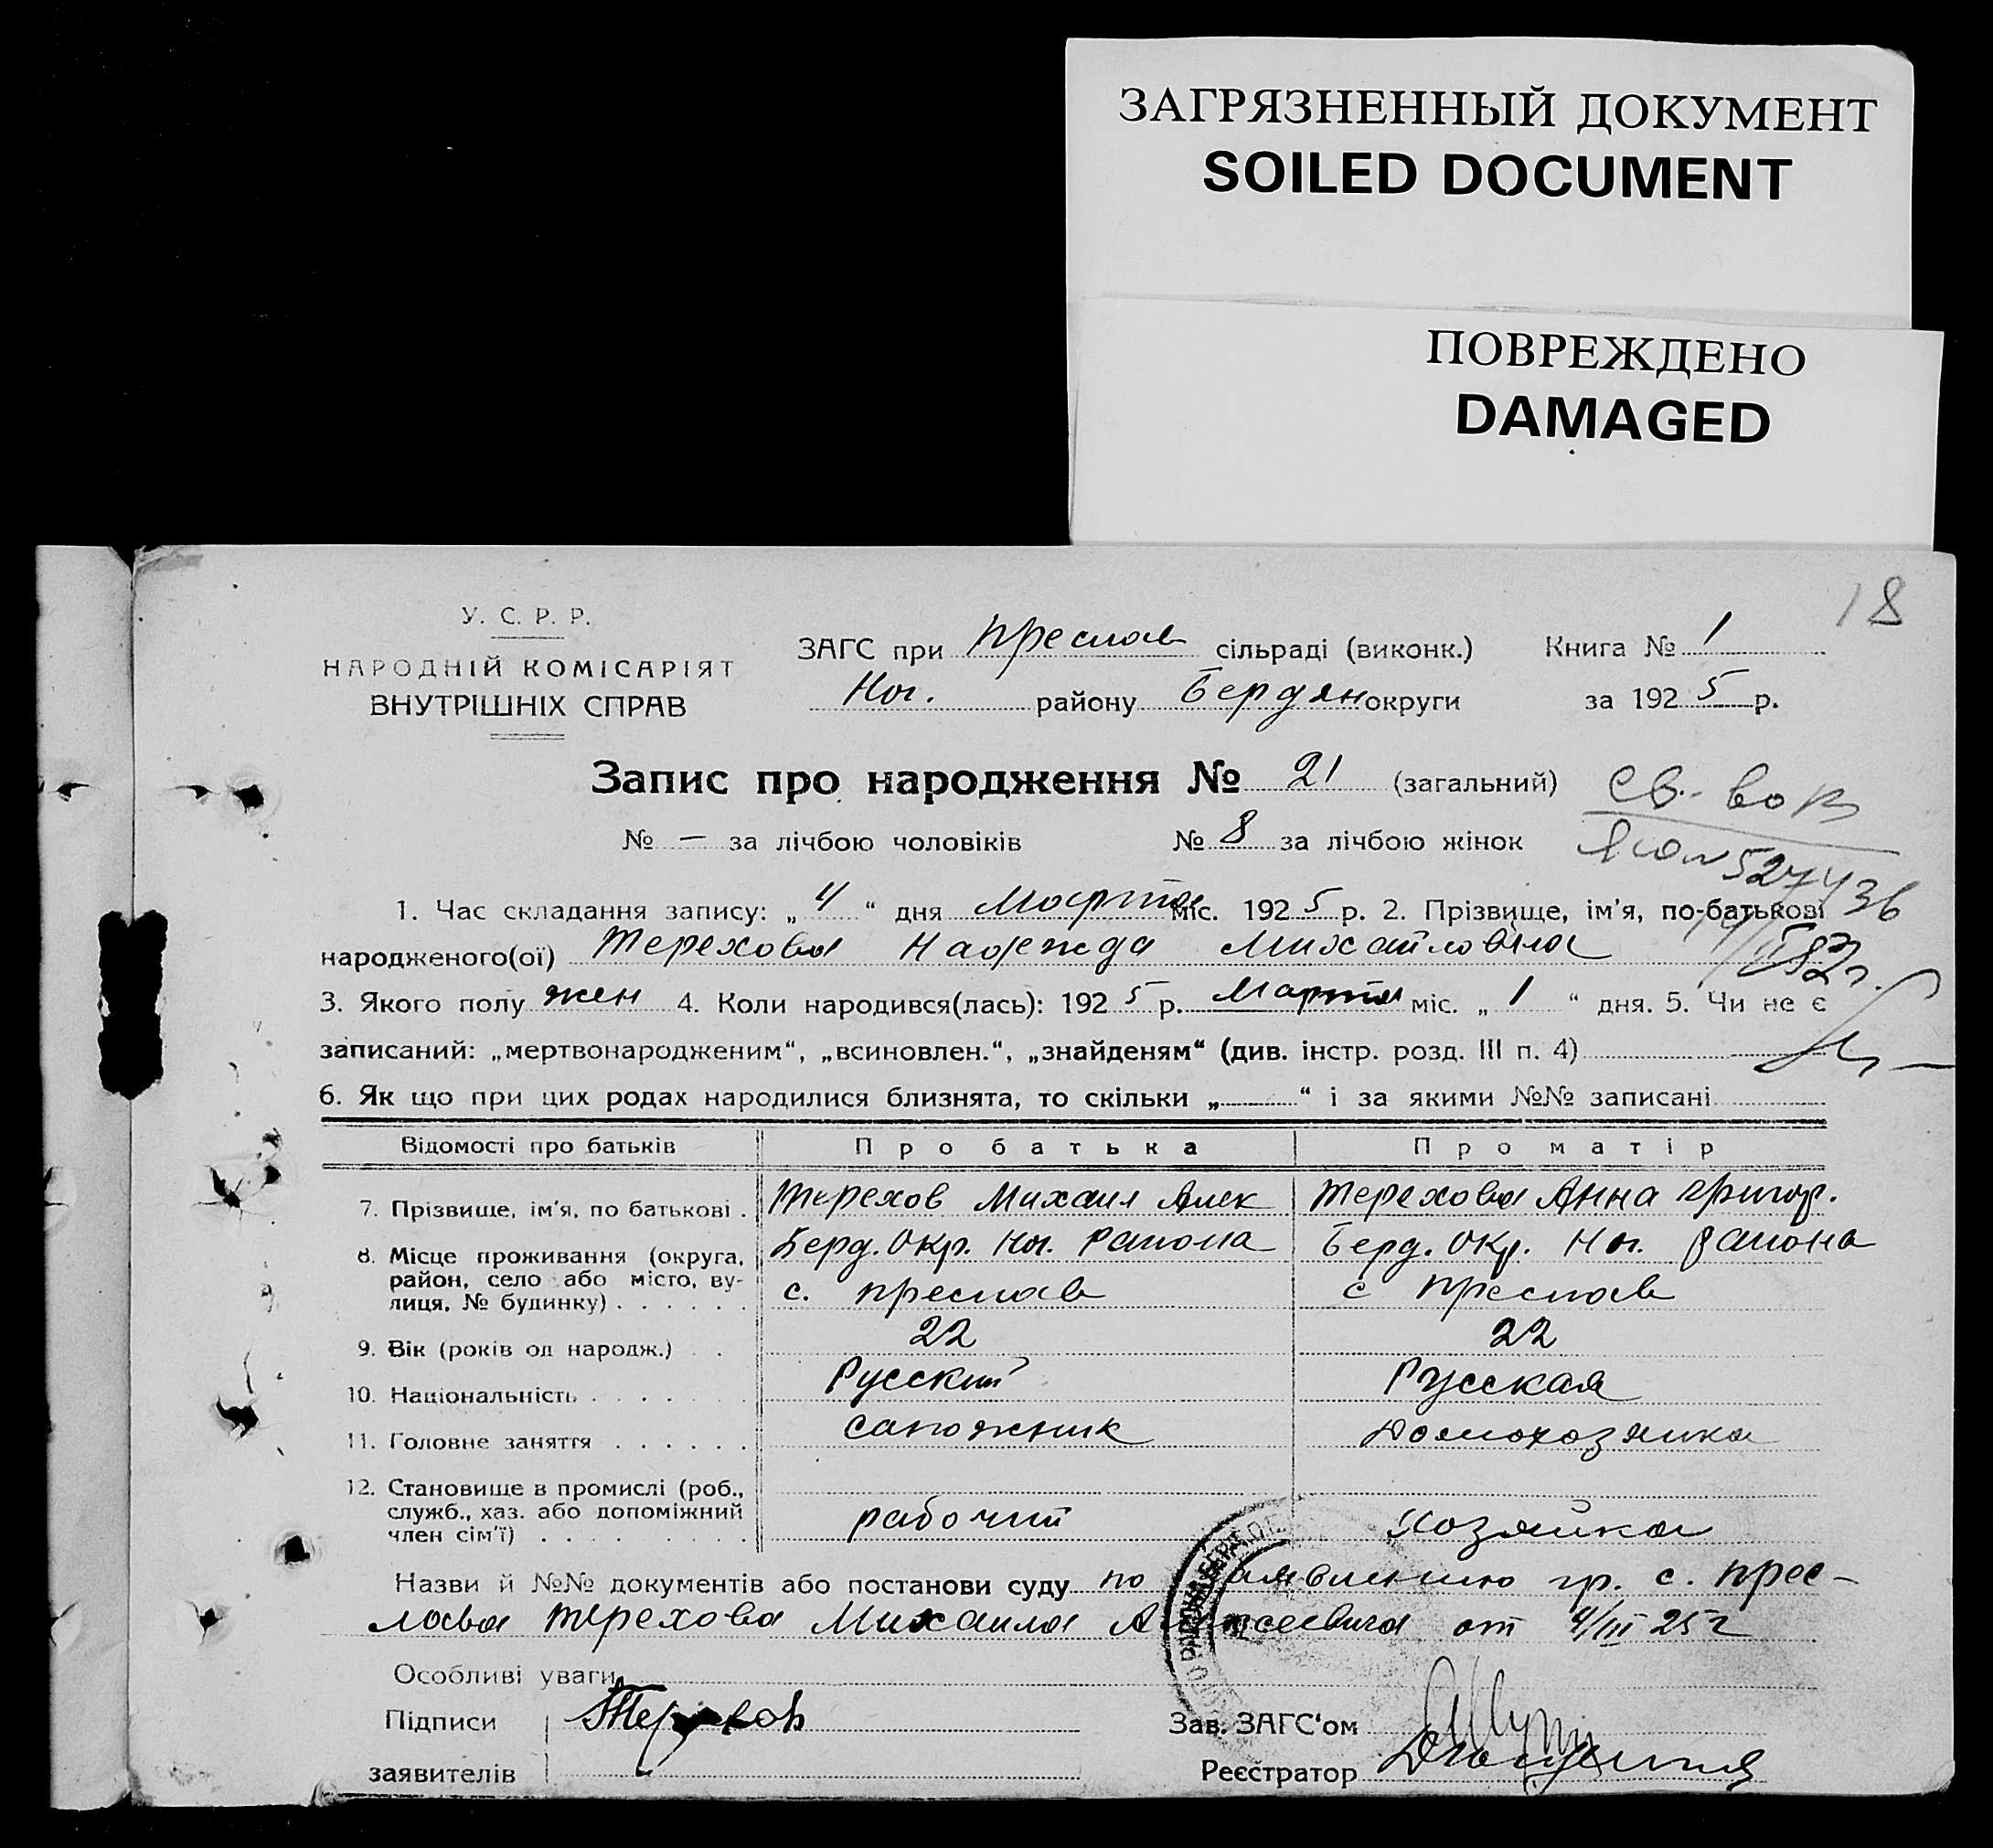 ЗАГРЯЗНЕННЫЙ ДОКУМЕНТ
SOILED DOCUMENT
ПОВРЕЖДЕНО
DAMAGED
18
У. С. Р. Р.
НАРОДНІЙ КОМІСАРІЯТ
ВНУТРІШНІХ СПРАВ
ЗАГС при Преслав сільраді (виконк.) Книга № 1
Ног. району Бердян округи за 1925 р.
Запис про народження № 21 (загальний)
св-во
№ — за лічбою чоловіків № 8 за лічбою жінок
527436
1. Час складання запису: „4“ дня Марта міс. 1925 р. 2. Прізвище, ім'я, по-батькові
народженого(ої) Терехова Надежда Михайловна
3. Якого полу жен 4. Коли народився(лась): 1925 р. Марта міс. „1“ дня. 5. Чи не є
записаний: „мертвонародженим“, „всиновлен.“, „знайденям“ (див. інстр. розд. III п. 4)
6. Як що при цих родах народилися близнята, то скільки „ “ і за якими №№ записані
Відомості про батьків Про батька Про матір
7. Прізвище, ім'я, по батькові . Терехов Михаил Алек Терехова Анна Григор.
8. Місце проживання (округа, район, село або місто, вулиця, № будинку) . . . . . . Берд. Окр. Ног. Района Берд. Окр. Ног. района
с. Преслав с Преслав
9. Вік (років од народж.) . . 22 22
10. Національність . . . . . . Русский Русская
11. Головне заняття . . . . . . сапожник Домохозяйка
12. Становище в промислі (роб.,
служб., хаз. або допоміжний
член сім'ї) . . . . . . рабочий Хозяйка
Назви й №№ документів або постанови суду по заявлению гр. с. Прес-
лава Терехова Михаила Алексеевича от 4/III 25 г
Особливі уваги
Підписи Терехов Зав. ЗАГС'ом
заявителів Реєстратор